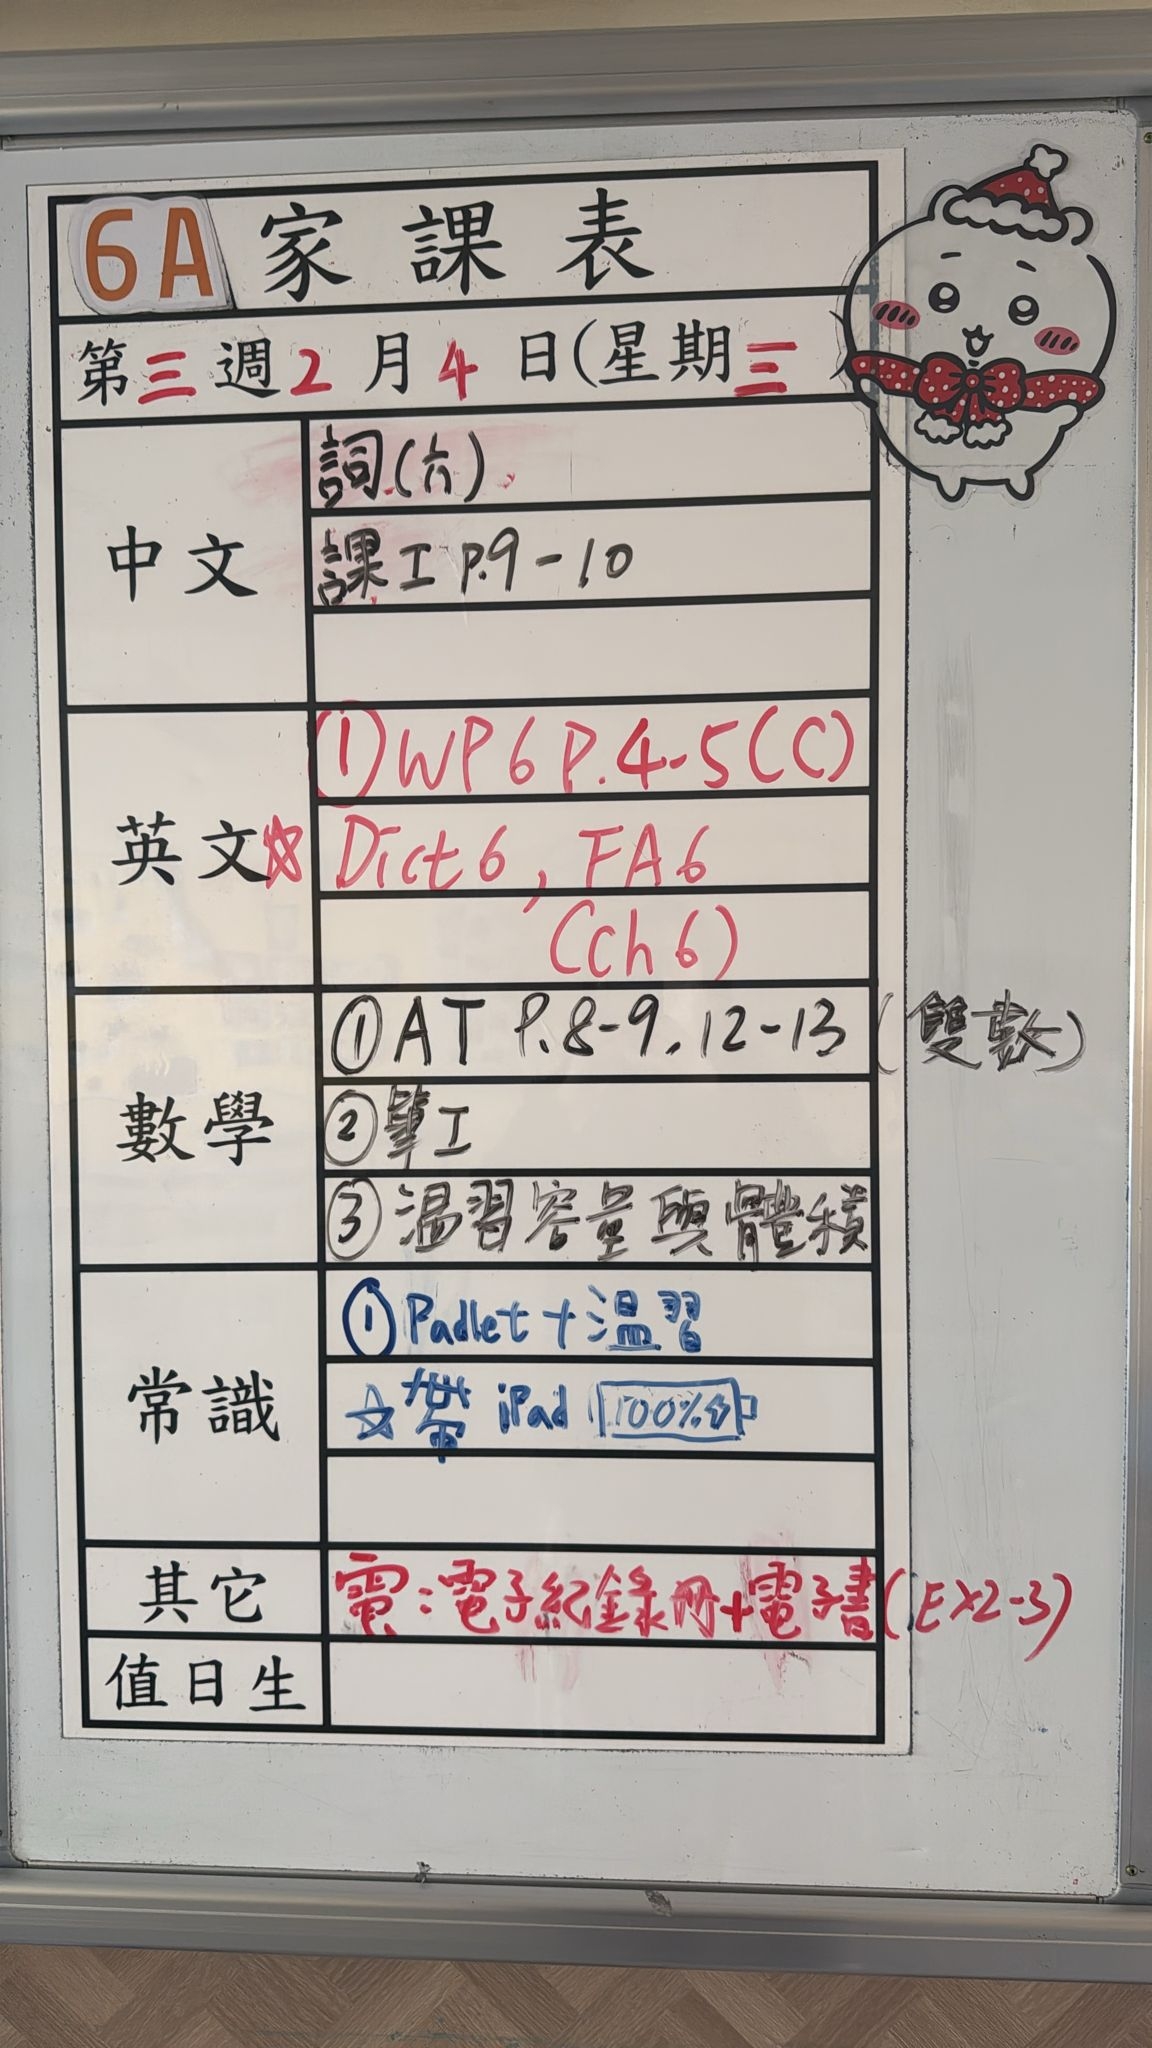 6A 家課表
第三週2月4日(星期三
中文
詞(六)
課工 P.9-10
英文☆
①WP6 P.4-5(C)
Dict 6, FA6
(Ch 6)
數學
①AT P.8-9, 12-13 (雙數)
②筆工
③溫習容量與體積
常識
①Padlet+溫習
☆帶 iPad 100%
其它
電:電子紀錄冊+電子書(EX2-3)
值日生